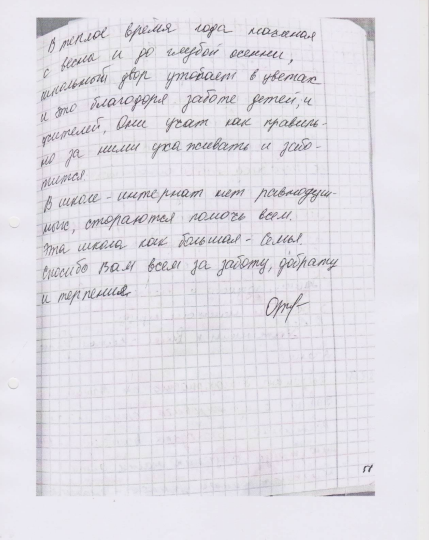 В теплое время года начиная
с весны и до глубой осенни,
школьный двор утопает в цветах
и это благодоря заботе детей, и
учителей. Они учат как правиль-
но за ними ухаживать и забо-
тится.
В школе-интернат нет равнодуш-
ных, стораются помочь всем.
Эта школа как большая - семья.
Спосибо Вам всем за заботу, доброту
и терпения.
51